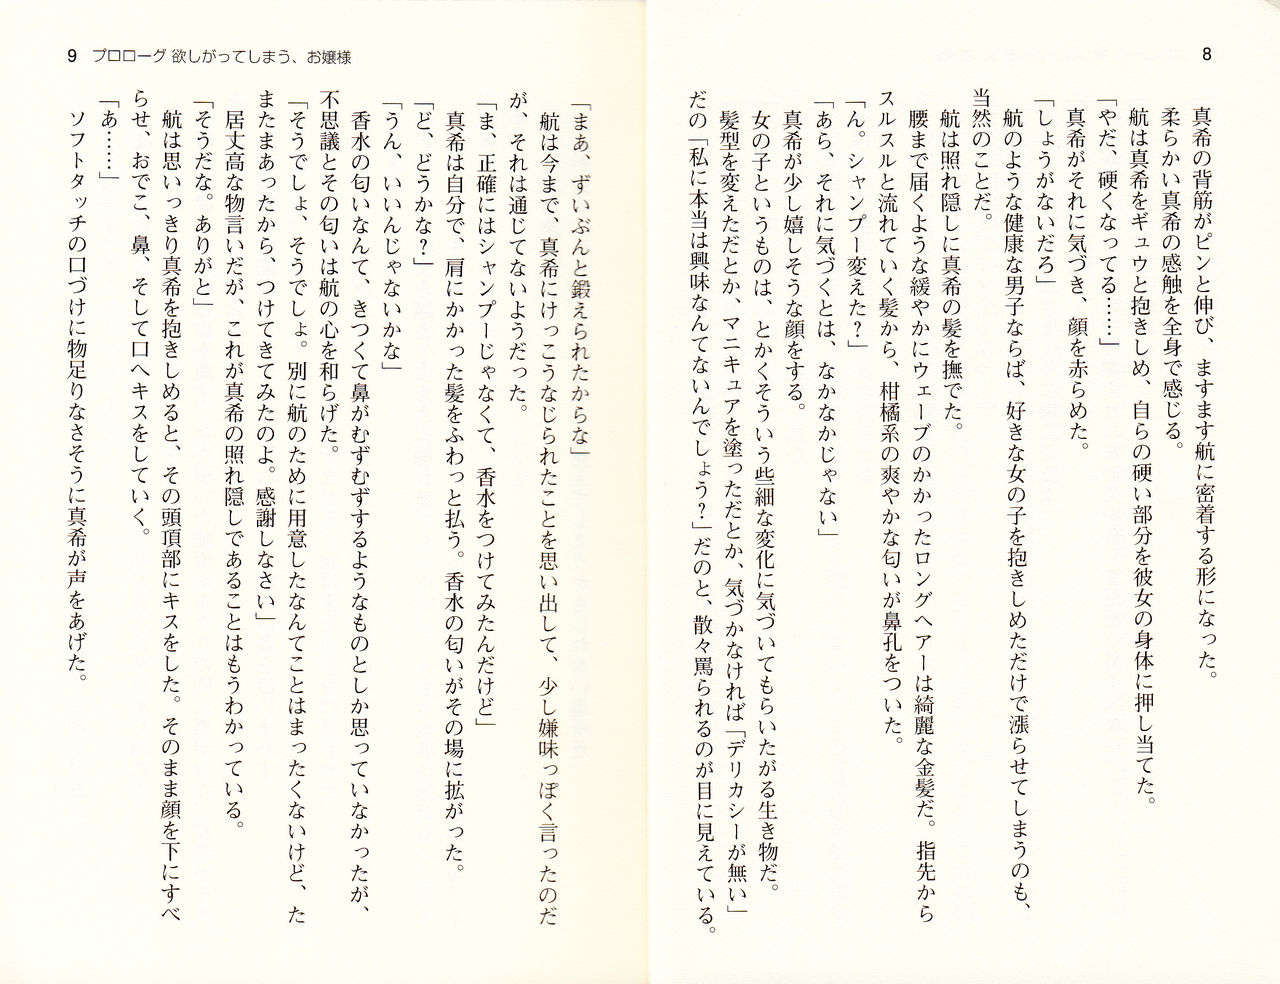 8
真希の背筋がピンと伸び、ますます航に密着する形になった。
柔らかい真希の感触を全身で感じる。
航は真希をギュウと抱きしめ、自らの硬い部分を彼女の身体に押し当てた。
「やだ、硬くなってる……」
真希がそれに気づき、顔を赤らめた。
「しょうがないだろ」
航のような健康な男子ならば、好きな女の子を抱きしめただけで漲らせてしまうのも、
当然のことだ。
航は照れ隠しに真希の髪を撫でた。
腰まで届くような緩やかにウェーブのかかったロングヘアーは綺麗な金髪だ。指先から
スルスルと流れていく髪から、柑橘系の爽やかな匂いが鼻孔をついた。
「ん。シャンプー変えた？」
「あら、それに気づくとは、なかなかじゃない」
真希が少し嬉しそうな顔をする。
女の子というものは、とかくそういう些細な変化に気づいてもらいたがる生き物だ。
髪型を変えただとか、マニキュアを塗っただとか、気づかなければ「デリカシーが無い」
だの「私に本当は興味なんてないんでしょう？」だのと、散々罵られるのが目に見えている。
9 プロローグ 欲しがってしまう、お嬢様
「まあ、ずいぶんと鍛えられたからな」
航は今まで、真希にけっこうなじられたことを思い出して、少し嫌味っぽく言ったのだ
が、それは通じてないようだった。
「ま、正確にはシャンプーじゃなくて、香水をつけてみたんだけど」
真希は自分で、肩にかかった髪をふわっと払う。香水の匂いがその場に拡がった。
「ど、どうかな？」
「うん、いいんじゃないかな」
香水の匂いなんて、きつくて鼻がむずむずするようなものとしか思っていなかったが、
不思議とその匂いは航の心を和らげた。
「そうでしょ、そうでしょ。別に航のために用意したなんてことはまったくないけど、た
またまあったから、つけてきてみたのよ。感謝しなさい」
居丈高な物言いだが、これが真希の照れ隠しであることはもうわかっている。
「そうだな。ありがと」
航は思いっきり真希を抱きしめると、その頭頂部にキスをした。そのまま顔を下にすべ
らせ、おでこ、鼻、そして口へキスをしていく。
「あ……」
ソフトタッチの口づけに物足りなさそうに真希が声をあげた。